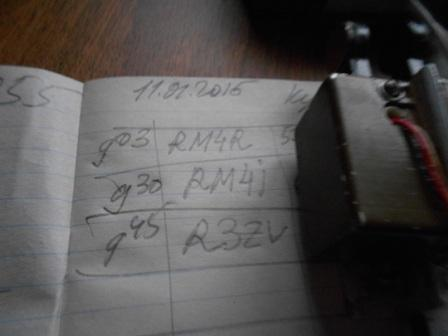 55
11.01.2015
g03 RM4R 5
g30 RM4j
g45 R3ZV